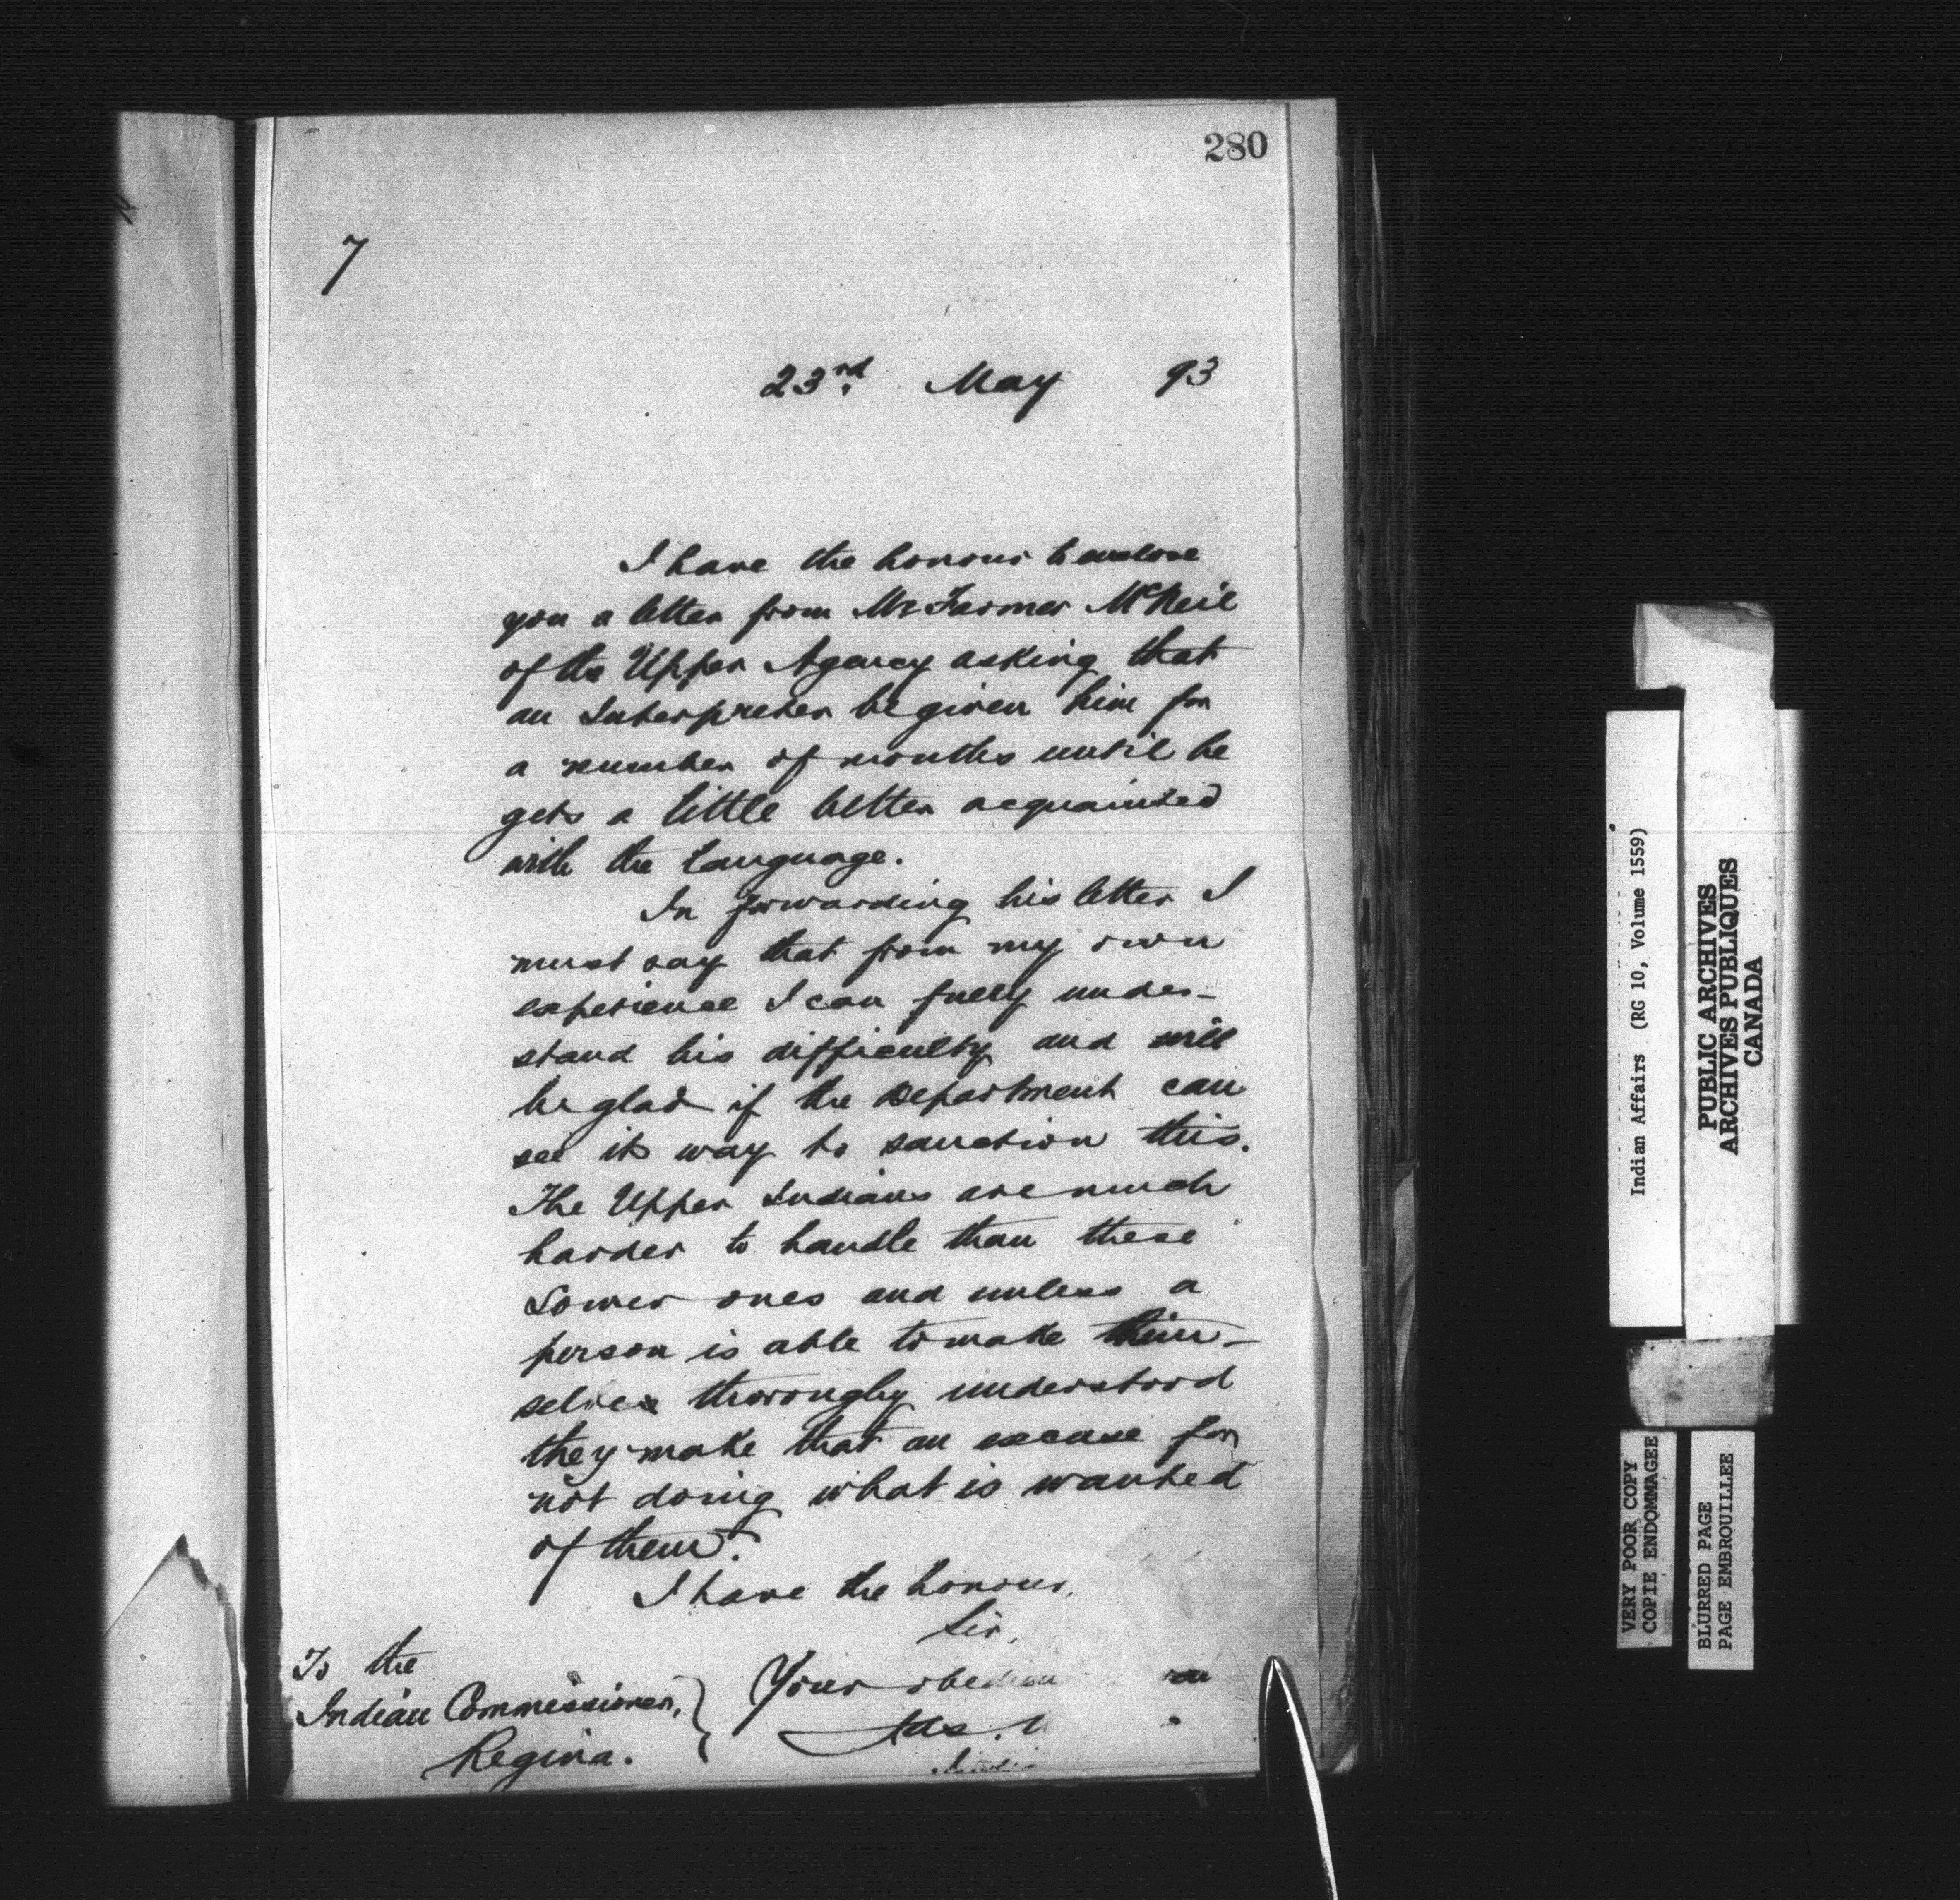 280
7
23rd. May 93
I have the honour to enclose
you a letter from Mr Farmer McNeil
of the Upper Agency asking that
an Interpreter be given him for
a number of months until he
gets a little better acquainted
with the language.
In forwarding his letter I
must say that from my own
experience I can fully under-
stand his difficulty and will
be glad if the Department can
see its way to sanction this.
The Upper Indians are much
harder to handle than these
Lower ones and unless a
person is able to make them-
selves thoroughly understood
they make that an excuse for
not doing what is wanted
of them.
I have the honour,
Sir,
Your
Jas.
To the
Indian Commissioner,
Regina.
Indian Affairs (RG 10, Volume 1559)
PUBLIC ARCHIVES
ARCHIVES PUBLIQUES
CANADA
VERY POOR COPY
COPIE ENDOMMAGEE
BLURRED PAGE
PAGE EMBROUILLEE